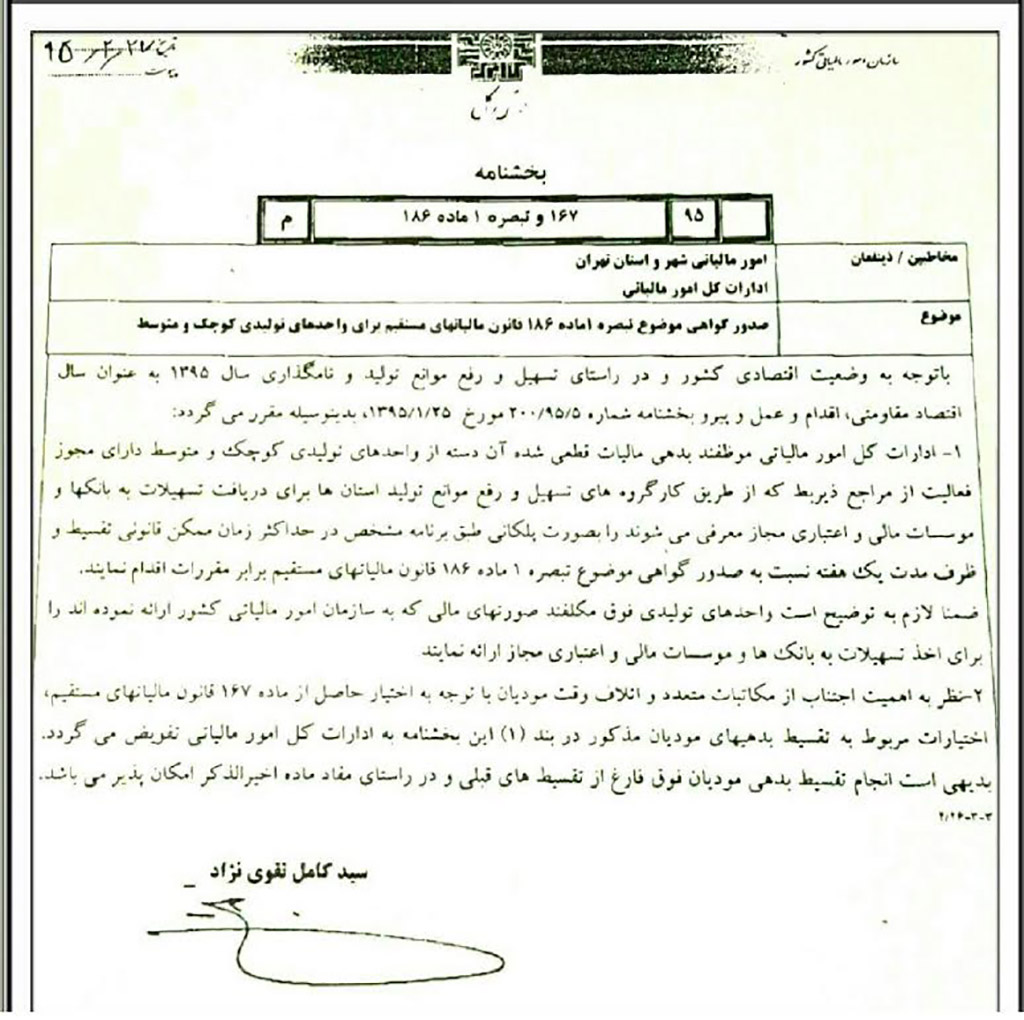 سازمان امور مالیاتی کشور
تاریخ
بخشنامه
۹۵
۱۶۷ و تبصره ۱ ماده ۱۸۶
م
مخاطبین / ذینفعان
امور مالیاتی شهر و استان تهران
ادارات کل امور مالیاتی
موضوع
صدور گواهی موضوع تبصره ۱ماده ۱۸۶ قانون مالیاتهای مستقیم برای واحدهای تولیدی کوچک و متوسط
باتوجه به وضعیت اقتصادی کشور و در راستای تسهیل و رفع موانع تولید و نامگذاری سال ۱۳۹۵ به عنوان سال
اقتصاد مقاومتی، اقدام و عمل و پیرو بخشنامه شماره ۲۰۰/۹۵/۵ مورخ ۱۳۹۵/۱/۲۵، بدینوسیله مقرر می گردد:
۱- ادارات کل امور مالیاتی موظفند بدهی مالیات قطعی شده آن دسته از واحدهای تولیدی کوچک و متوسط دارای مجوز
فعالیت از مراجع ذیربط که از طریق کارگروه های تسهیل و رفع موانع تولید استان ها برای دریافت تسهیلات به بانکها و
موسسات مالی و اعتباری مجاز معرفی می شوند را بصورت پلکانی طبق برنامه مشخص در حداکثر زمان ممکن قانونی تقسیط و
ظرف مدت یک هفته نسبت به صدور گواهی موضوع تبصره ۱ ماده ۱۸۶ قانون مالیاتهای مستقیم برابر مقررات اقدام نمایند.
ضمنا لازم به توضیح است واحدهای تولیدی فوق مکلفند صورتهای مالی که به سازمان امور مالیاتی کشور ارائه نموده اند را
برای اخذ تسهیلات به بانک ها و موسسات مالی و اعتباری مجاز ارائه نمایند
۲-نظر به اهمیت اجتناب از مکاتبات متعدد و اتلاف وقت مودیان با توجه به اختیار حاصل از ماده ۱۶۷ قانون مالیاتهای مستقیم،
اختیارات مربوط به تقسیط بدهیهای مودیان مذکور در بند (۱) این بخشنامه به ادارات کل امور مالیاتی تفویض می گردد.
بدیهی است انجام تقسیط بدهی مودیان فوق فارغ از تقسیط های قبلی و در راستای مفاد ماده اخیرالذکر امکان پذیر می باشد.
سید کامل تقوی نژاد